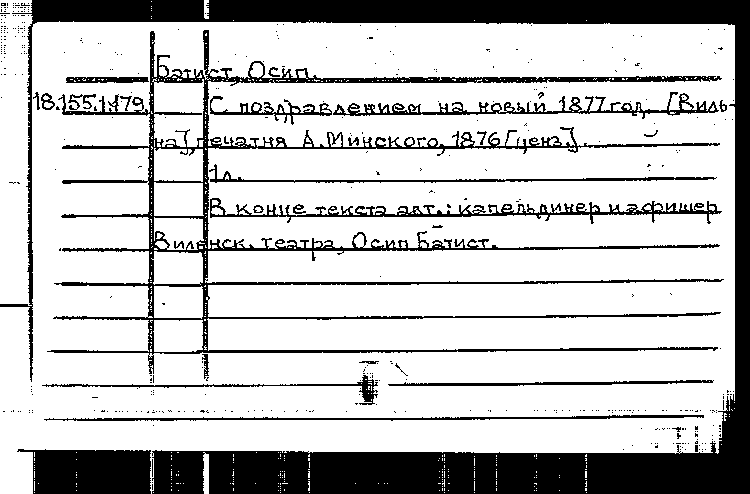 Батист, Осип.
18.155.1.479. С поздравлением на новый 1877 год. [Виль-
на], печатня А. Минского, 1876 [ценз.].
1 л.
В конце текста авт.: капельдинер и афишер
Виленск. театра, Осип Батист.